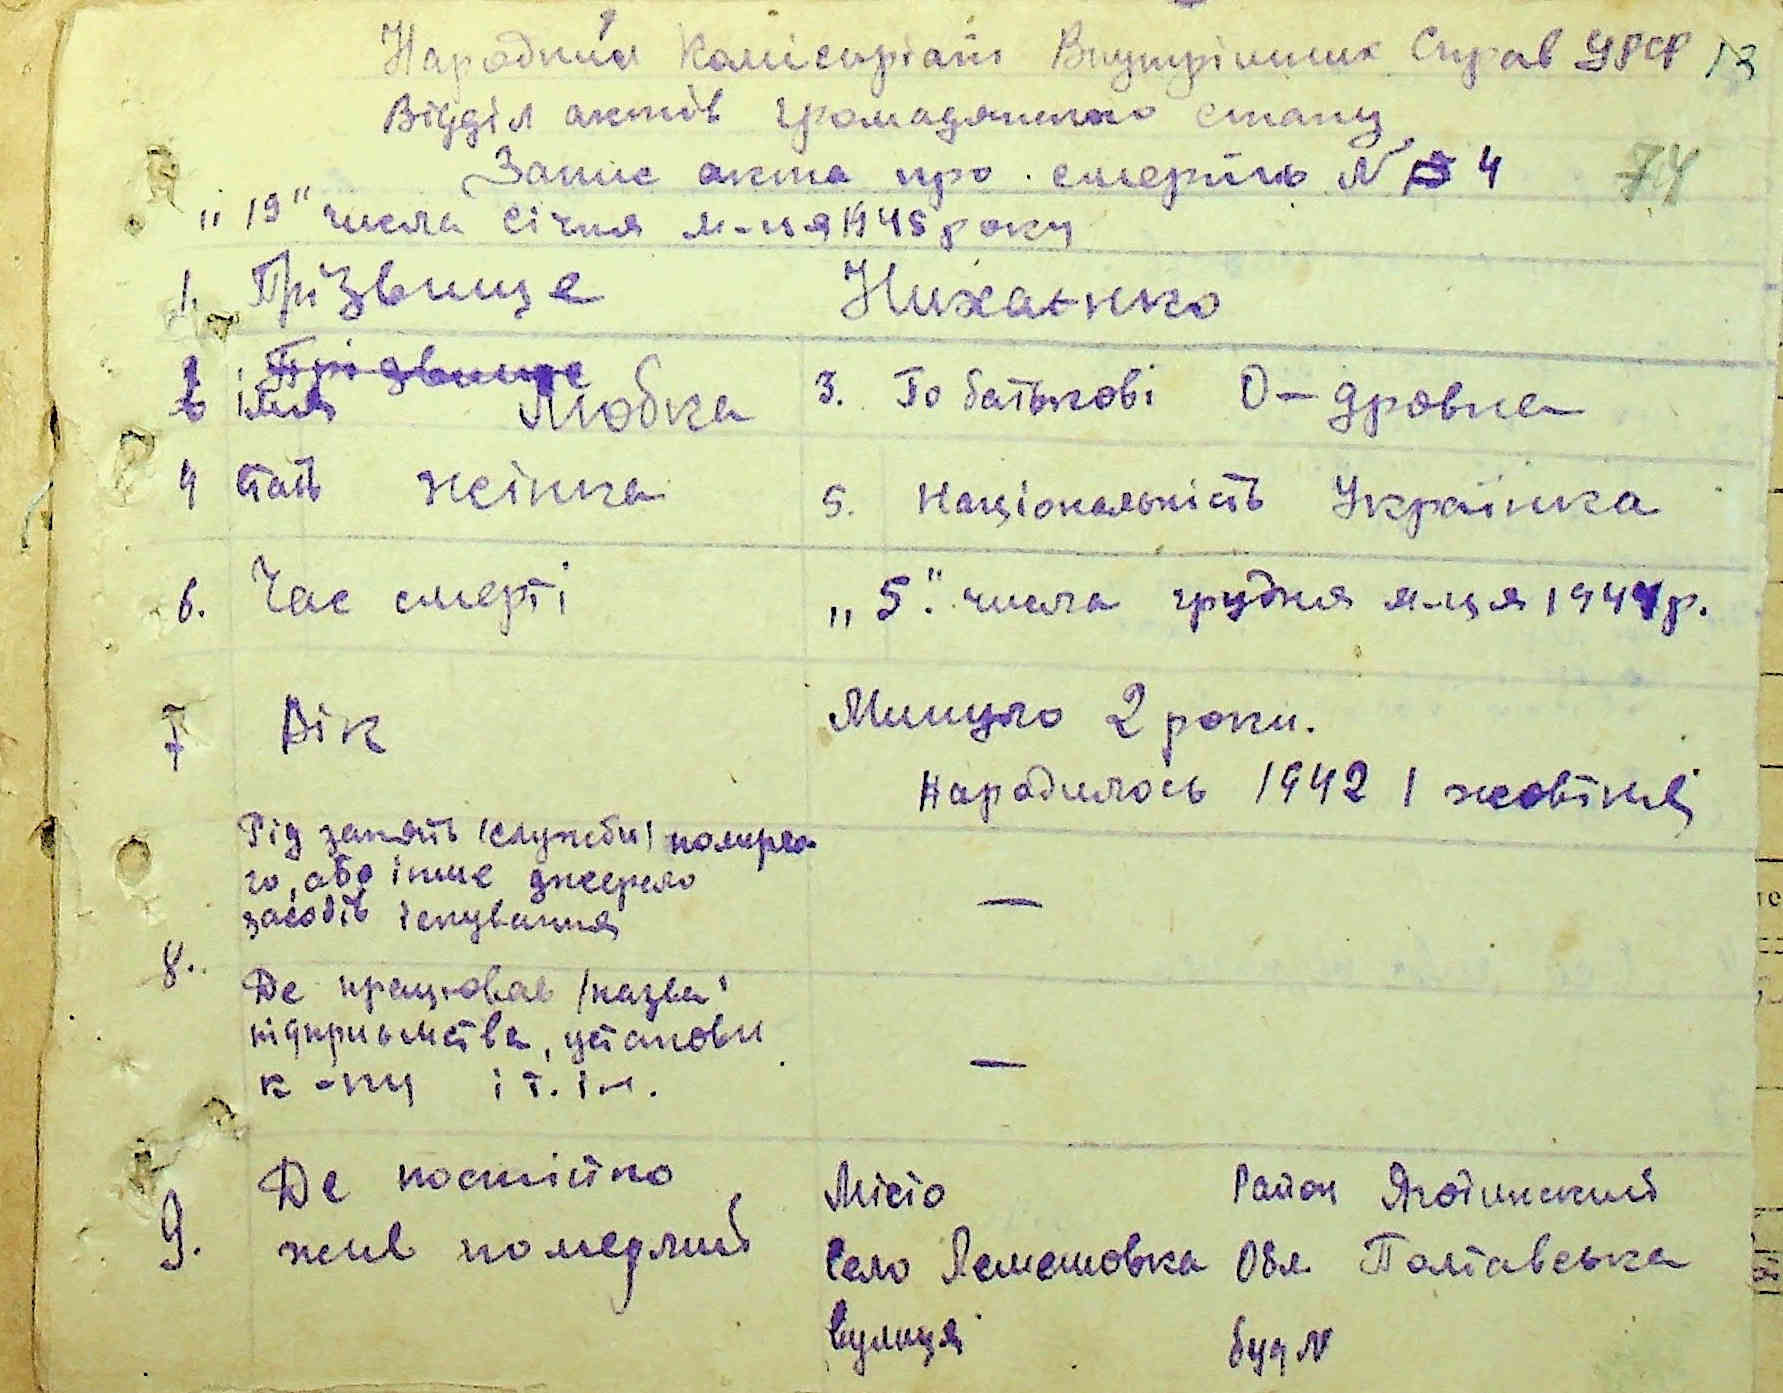 Народний Комісиріат Внутрішних Справ УРСР 13
Відділ актів громадянського стану
Запис акта про смерть N 4 74
"19" числа Січня м-ця 1945 року
1. Прізвище
2 Прізвище
імя Любка 3. По батькові О-дровна
4 Стать жінка 5. Національність Українка
6. Час смерті "5" числа грудня м-ця 1944р.
7 Вік Минуло 2 роки.
Народилось 1942 1 жовтня
Рід занять /служби/ померло-
го, або інше джерело
засобів існування —
8. Де працював /назва
підприьмства, установи
к-пу і т. ін. —
9. Де постійно Місто Район Яготинский
жив померлий Село Лемешовка Обл. Полтавська
вулиця буд N